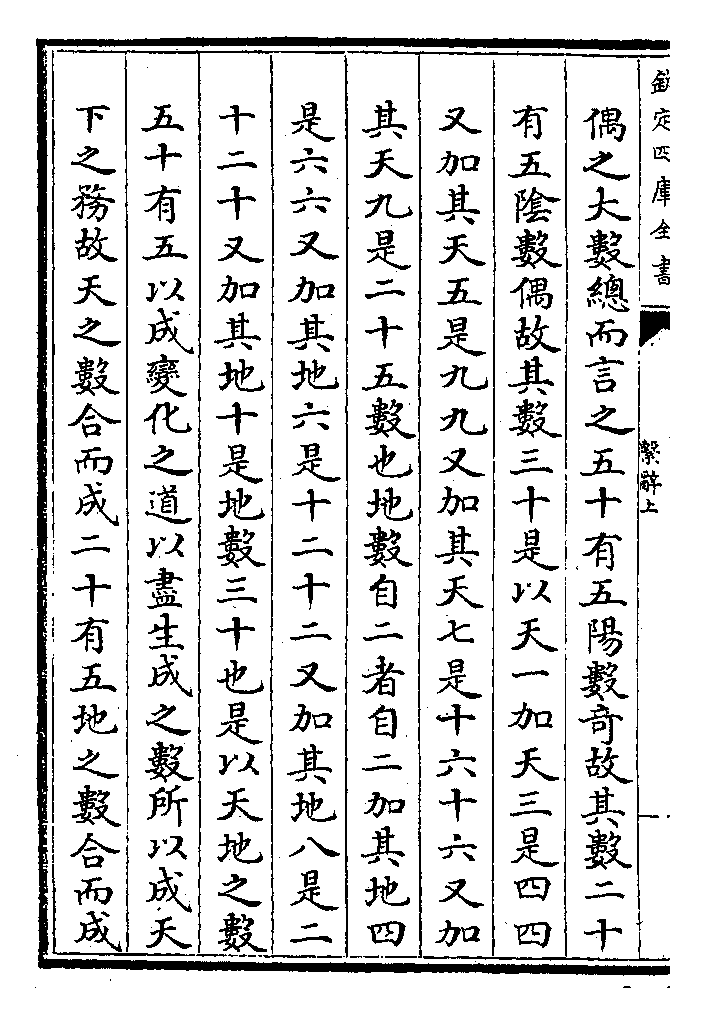 欽定四庫全書
繫辭上
偶之大數總而言之五十有五陽數奇故其數二十
有五陰數偶故其數三十是以天一加天三是四四
又加其天五是九九又加其天七是十六十六又加
其天九是二十五數也地數自二者自二加其地四
是六六又加其地六是十二十二又加其地八是二
十二十又加其地十是地數三十也是以天地之數
五十有五以成變化之道以盡生成之數所以成天
下之務故天之數合而成二十有五地之數合而成